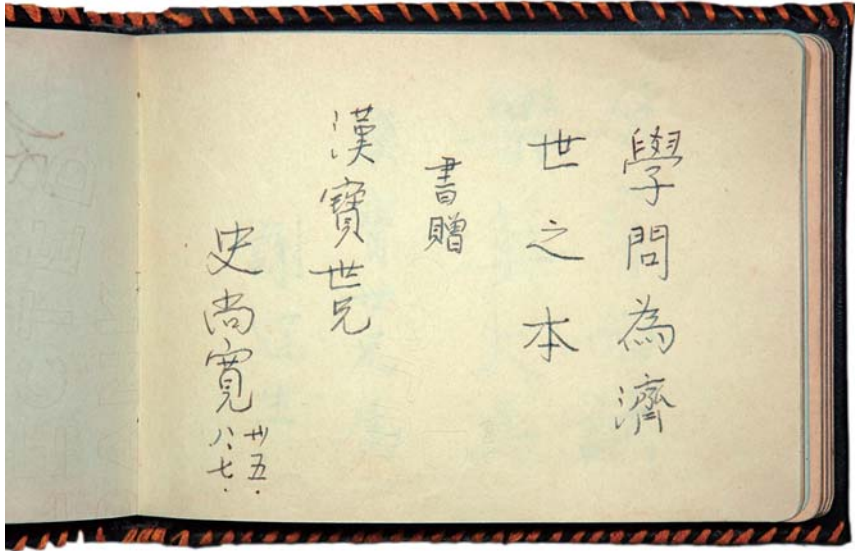 學問為濟
世之本
書贈
漢寶世兄
史尚寬
廿五.
八.七.